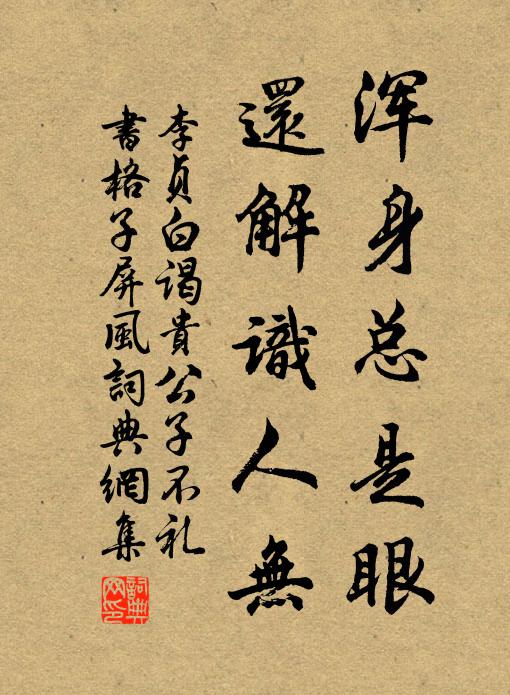 浑身总是眼
還解識人無
李贞白谒貴公子不礼
書格子屏風詞典網集
詞典网印